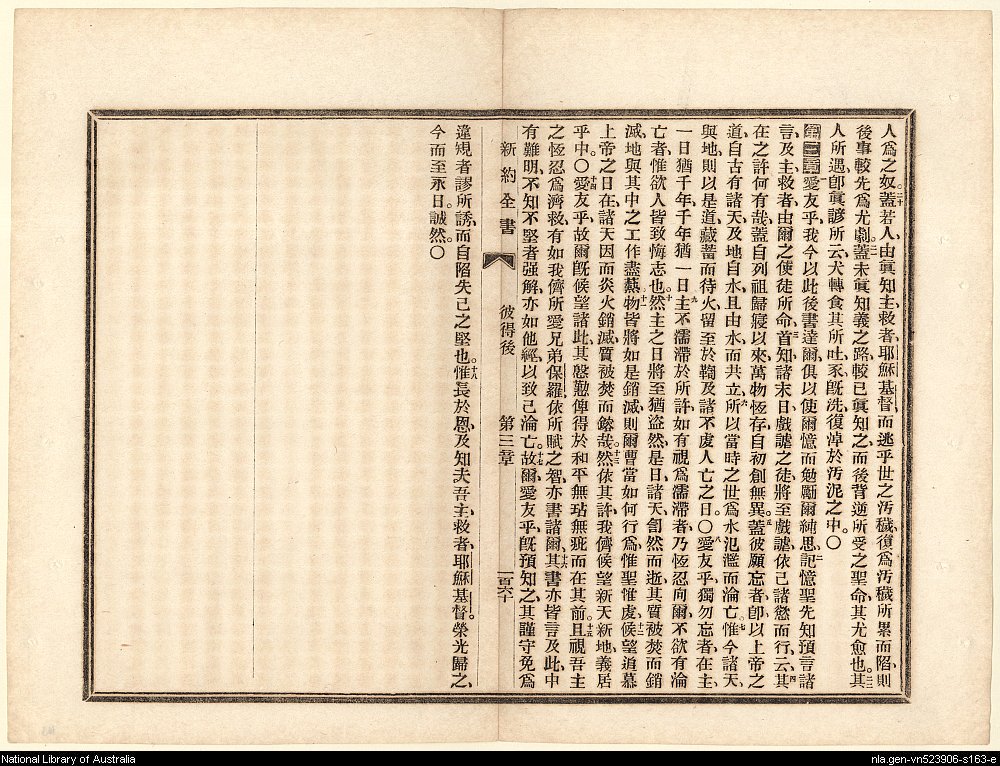 人爲之奴、二十蓋若人由眞知主救者耶穌基督而逃乎世之汚穢、復爲汚穢所累而陷、則
後事較先爲尤劇、二一蓋未眞知義之路、較已眞知之而後背逆所受之聖命、其尤愈也、二二其
人所遇、卽眞諺所云、犬轉食其所吐、豕旣洗、復淖於汚泥之中。〇
第三章愛友乎、我今以此後書達爾、俱以使爾憶而勉勵爾純思、二記憶聖先知預言諸
言及主救者由爾之使徒所命、三首知諸末日、戲謔之徒將至戲謔、依己諸慾而行、云、四其
在之許何有哉、蓋自列祖歸寢以來、萬物恆存、自初創無異、五蓋彼願忘者、卽以上帝之
道、自古有諸天、及地自水且由水而共立、六所以當時之世爲水氾濫而淪亡、七惟今諸天
與地、則以是道、藏蓄而待火、留至於鞫及諸不虔人亡之日。〇八愛友乎、獨勿忘者、在主
一日猶千年、千年猶一日、九主不濡滯於所許、如有視爲濡滯者、乃恆忍向爾、不欲有淪
亡者、惟欲人皆致悔志也、十然主之日將至猶盜然、是日諸天訇然而逝、其質被焚而銷
滅、地與其中之工作盡爇、十一物皆將如是銷滅、則爾曹當如何行爲、惟聖惟虔、十二候望遄慕
上帝之日、在諸天因而炎火銷滅、質被焚而鎔哉、十三然依其許、我儕候望新天新地、義居
乎中。〇十四愛友乎、故爾旣候望諸此、其慇懃俾得於和平無玷無疵而在其前、十五且視吾主
之恆忍爲濟救、有如我儕所愛兄弟保羅、依所賦之智、亦書諸爾、十六其書亦皆言及此、中
有難明、不知不堅者强解、亦如他經、以致己淪亡、十七故爾愛友乎、旣預知之、其謹守免爲
新約全書 彼得後 第三章 一百六十
違規者謬所誘、而自陷失己之堅也、十八惟長於恩、及知夫吾主救者耶穌基督、榮光歸之、
今而至永日、誠然。〇
National Library of Australia
nla.gen-vn523906-s163-e